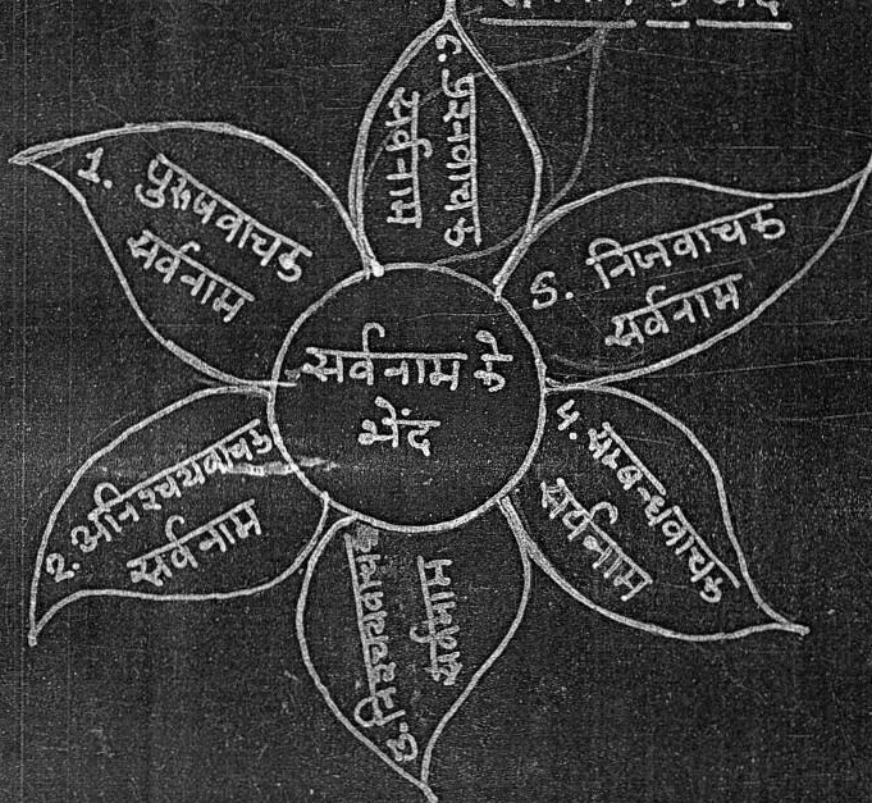 सर्वनाम के
भेंद
1. पुरूषवाचक
सर्वनाम
२. अनिश्चयवाचक
सर्वनाम
3. निश्चयवाचक
सर्वनाम
4. सम्बन्धवाचक
सर्वनाम
5. निजवाचक
सर्वनाम
6. प्रश्नवाचक
सर्वनाम